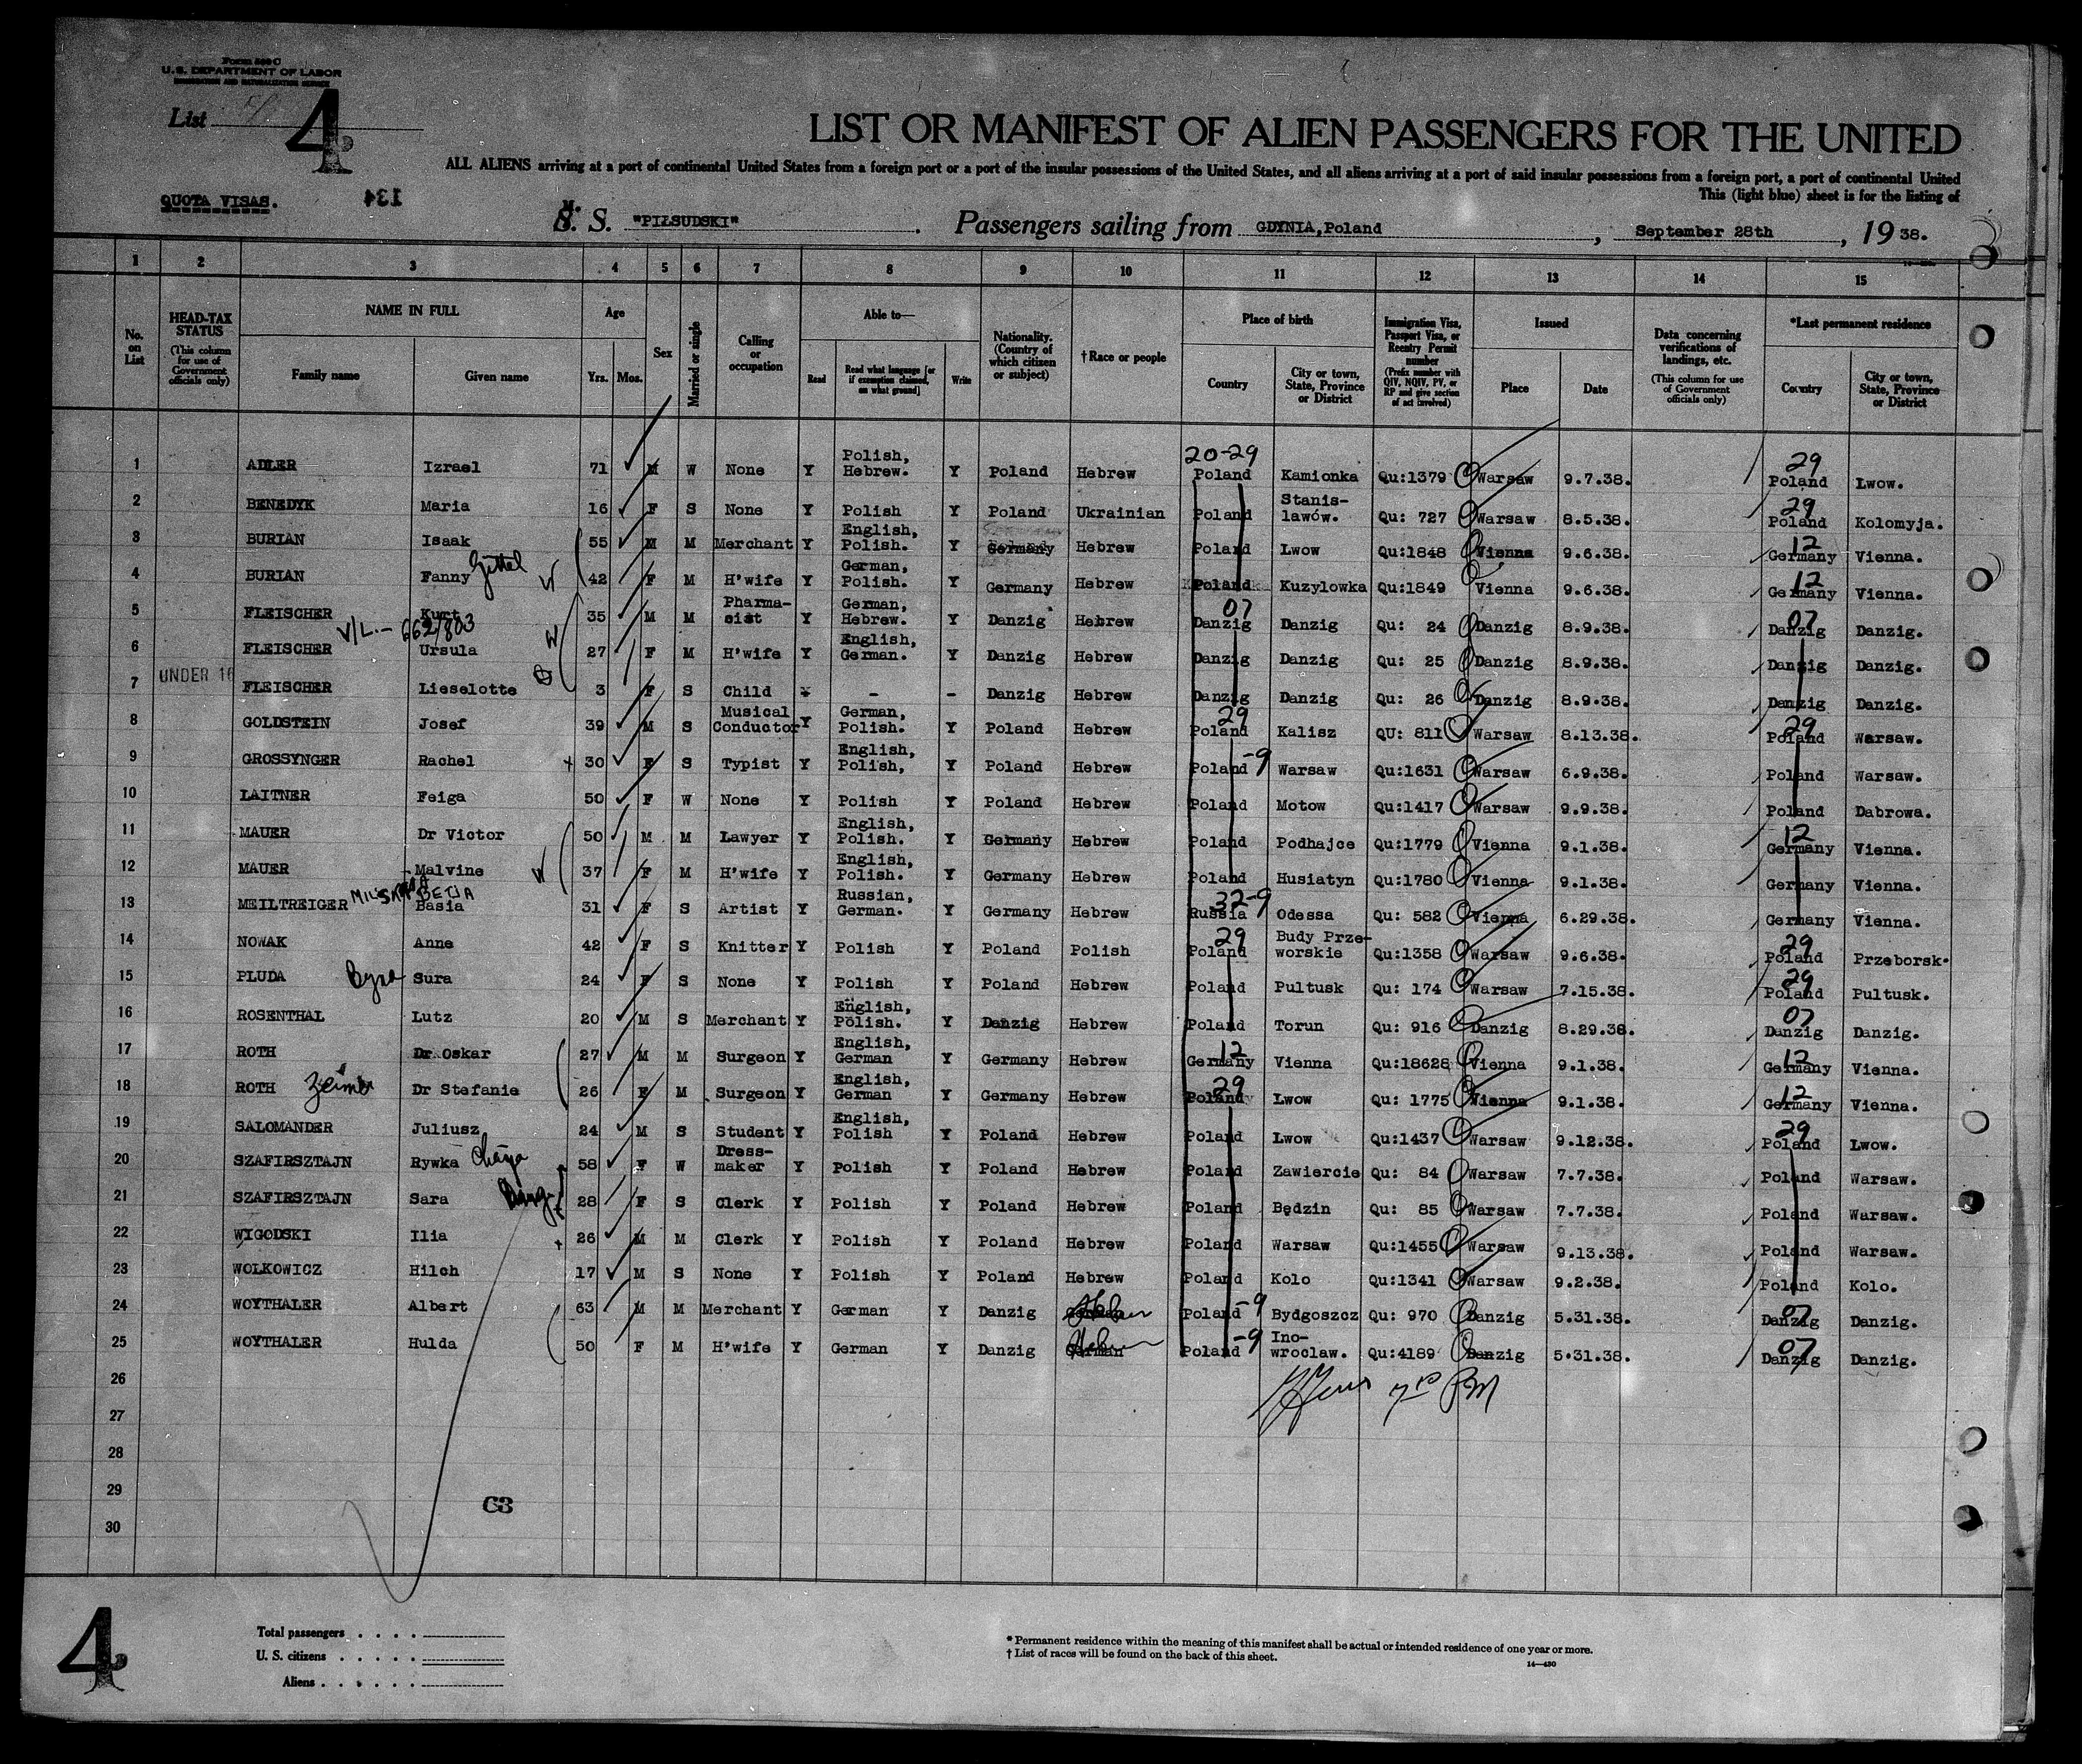 Form 500 C
U.S. DEPARTMENT OF LABOR
IMMIGRATION AND NATURALIZATION SERVICE
List 4
LIST OR MANIFEST OF ALIEN PASSENGERS FOR THE UNITED
ALL ALIENS arriving at a port of continental United States from a foreign port or a port of the insular possessions of the United States, and all aliens arriving at a port of said insular possessions from a foreign port, a port of continental United
This (light blue) sheet is for the listing of
QUOTA VISAS. 134
M. S. S. "PIŁSUDSKI" . Passengers sailing from GDYNIA, Poland , September 28th , 19 38.
1 2 3 4 5 6 7 8 9 10 11 12 13 14 15
No. on List
HEAD-TAX STATUS (This column for use of Government officials only)
NAME IN FULL
Family name Given name
Age
Yrs. Mos.
Sex
Married or single
Calling or occupation
Able to—
Read Read what language [or if exemption claimed, on what ground] Write
Nationality. (Country of which citizen or subject)
† Race or people
Place of birth
Country City or town, State, Province or District
Immigration Visa, Passport Visa, or Reentry Permit number (Prefix number with QIV, NQIV, PV, or RP and give section of act involved)
Issued
Place Date
Data concerning verifications of landings, etc. (This column for use of Government officials only)
*Last permanent residence
Country City or town, State, Province or District
1 ADLER Izrael 71 M W None Y Polish, Hebrew. Y Poland Hebrew 20-29 Poland Kamionka Qu:1379 Warsaw 9.7.38. 29 Poland Lwow.
2 BENEDYK Maria 16 F S None Y Polish Y Poland Ukrainian Poland Stanis-lawów. Qu: 727 Warsaw 8.5.38. 29 Poland Kolomyja.
3 BURIAN Isaak 55 M M Merchant Y English, Polish. Y Germany Hebrew Poland Lwow Qu:1848 Vienna 9.6.38. 12 Germany Vienna.
4 BURIAN Fanny Gittel W 42 F M H'wife Y German, Polish. Y Germany Hebrew Poland Kuzylowka Qu:1849 Vienna 9.6.38. 12 Germany Vienna.
5 FLEISCHER Kurt 35 M M Pharma-cist Y German, Hebrew. Y Danzig Hebrew 07 Danzig Danzig Qu: 24 Danzig 8.9.38. 07 Danzig Danzig.
V/L.- 662/803 W
6 FLEISCHER Ursula 27 F M H'wife Y English, German. Y Danzig Hebrew Danzig Danzig Qu: 25 Danzig 8.9.38. Danzig Danzig.
7 UNDER 16 FLEISCHER Lieselotte 3 F S Child - - Danzig Hebrew Danzig Danzig Qu: 26 Danzig 8.9.38. Danzig Danzig.
8 GOLDSTEIN Josef 39 M S Musical Conductor Y German, Polish. Y Poland Hebrew 29 Poland Kalisz QU: 811 Warsaw 8.13.38. 29 Poland Warsaw.
9 GROSSYNGER Rachel + 30 F S Typist Y English, Polish, Y Poland Hebrew Poland -9 Warsaw Qu:1631 Warsaw 6.9.38. Poland Warsaw.
10 LAITNER Feiga 50 F W None Y Polish Y Poland Hebrew Poland Motow Qu:1417 Warsaw 9.9.38. Poland Dabrowa.
11 MAUER Dr Victor 50 M M Lawyer Y English, Polish. Y Germany Hebrew Poland Podhajce Qu:1779 Vienna 9.1.38. 12 Germany Vienna.
12 MAUER Malvine W 37 F M H'wife Y English, Polish. Y Germany Hebrew Poland Husiatyn Qu:1780 Vienna 9.1.38. Germany Vienna.
13 MEILTREIGER BETJA Basia 31 F S Artist Y Russian, German. Y Germany Hebrew 32-9 Russia Odessa Qu: 582 Vienna 6.29.38. Germany Vienna.
14 NOWAK Anne 42 F S Knitter Y Polish Y Poland Polish 29 Poland Budy Prze-worskie Qu:1358 Warsaw 9.6.38. 29 Poland Przeborsk.
15 PLUDA Sura 24 F S None Y Polish Y Poland Hebrew Poland Pultusk Qu: 174 Warsaw 7.15.38. 29 Poland Pultusk.
16 ROSENTHAL Lutz 20 M S Merchant Y English, Polish. Y Danzig Hebrew Poland Torun Qu: 916 Danzig 8.29.38. 07 Danzig Danzig.
17 ROTH Dr. Oskar 27 M M Surgeon Y English, German Y Germany Hebrew 12 Germany Vienna Qu:18628 Vienna 9.1.38. 12 Germany Vienna.
18 ROTH Dr Stefanie 26 F M Surgeon Y English, German Y Germany Hebrew 29 Poland Lwow Qu: 1775 Vienna 9.1.38. 12 Germany Vienna.
19 SALOMANDER Juliusz 24 M S Student Y English, Polish Y Poland Hebrew Poland Lwow Qu:1437 Warsaw 9.12.38. 29 Poland Lwow.
20 SZAFIRSZTAJN Rywka Chaja 58 F W Dress-maker Y Polish Y Poland Hebrew Poland Zawiercie Qu: 84 Warsaw 7.7.38. Poland Warsaw.
21 SZAFIRSZTAJN Sara 28 F S Clerk Y Polish Y Poland Hebrew Poland Będzin Qu: 85 Warsaw 7.7.38. Poland Warsaw.
22 WIGODSKI Ilia + 26 M M Clerk Y Polish Y Poland Hebrew Poland Warsaw Qu:1455 Warsaw 9.13.38. Poland Warsaw.
23 WOLKOWICZ Hilch 17 M S None Y Polish Y Poland Hebrew Poland Kolo Qu:1341 Warsaw 9.2.38. Poland Kolo.
24 WOYTHALER Albert 63 M M Merchant Y German Y Danzig Hebrew Poland -9 Bydgoszcz Qu: 970 Danzig 5.31.38. 07 Danzig Danzig.
25 WOYTHALER Hulda 50 F M H'wife Y German Y Danzig Hebrew Poland -9 Ino-wroclaw. Qu:4189 Danzig 5.31.38. 07 Danzig Danzig.
26
27
28
29
30
C3
4
Total passengers . . . .
U. S. citizens . . . . .
Aliens . . . . . .
* Permanent residence within the meaning of this manifest shall be actual or intended residence of one year or more.
† List of races will be found on the back of this sheet.
14—430